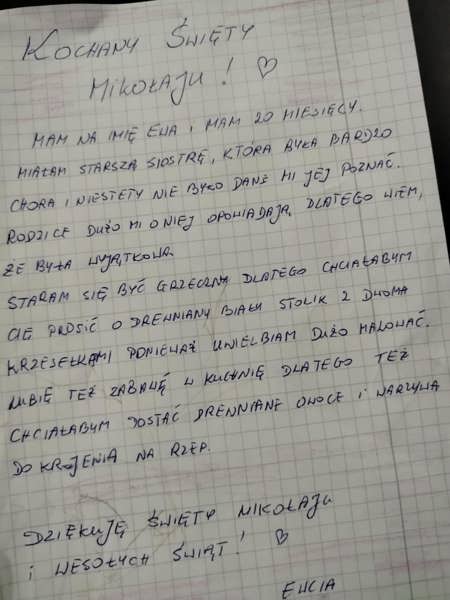 KOCHANY ŚWIĘTY
MIKOŁAJU! ♡
MAM NA IMIĘ EWA I MAM 20 MIESIĘCY.
MIAŁAM STARSZĄ SIOSTRĘ, KTÓRA BYŁA BARDZO
CHORA I NIESTETY NIE BYŁO DANE MI JEJ POZNAĆ.
RODZICE DUŻO MI O NIEJ OPOWIADAJĄ, DLATEGO WIEM,
ŻE BYŁA WYJĄTKOWA.
STARAM SIĘ BYĆ GRZECZNA DLATEGO CHCIAŁABYM
CIĘ PROSIĆ O DREWNIANY BIAŁY STOLIK Z DWOMA
KRZESEŁKAMI PONIEWAŻ UWIELBIAM DUŻO MALOWAĆ.
LUBIĘ TEŻ ZABAWĘ W KUCHNIĘ DLATEGO TEŻ
CHCIAŁABYM DOSTAĆ DREWNIANE OWOCE I WARZYWA
DO KROJENIA NA RZEP.
DZIĘKUJĘ ŚWIĘTY MIKOŁAJU
I WESOŁYCH ŚWIĄT! ♡
EWCIA